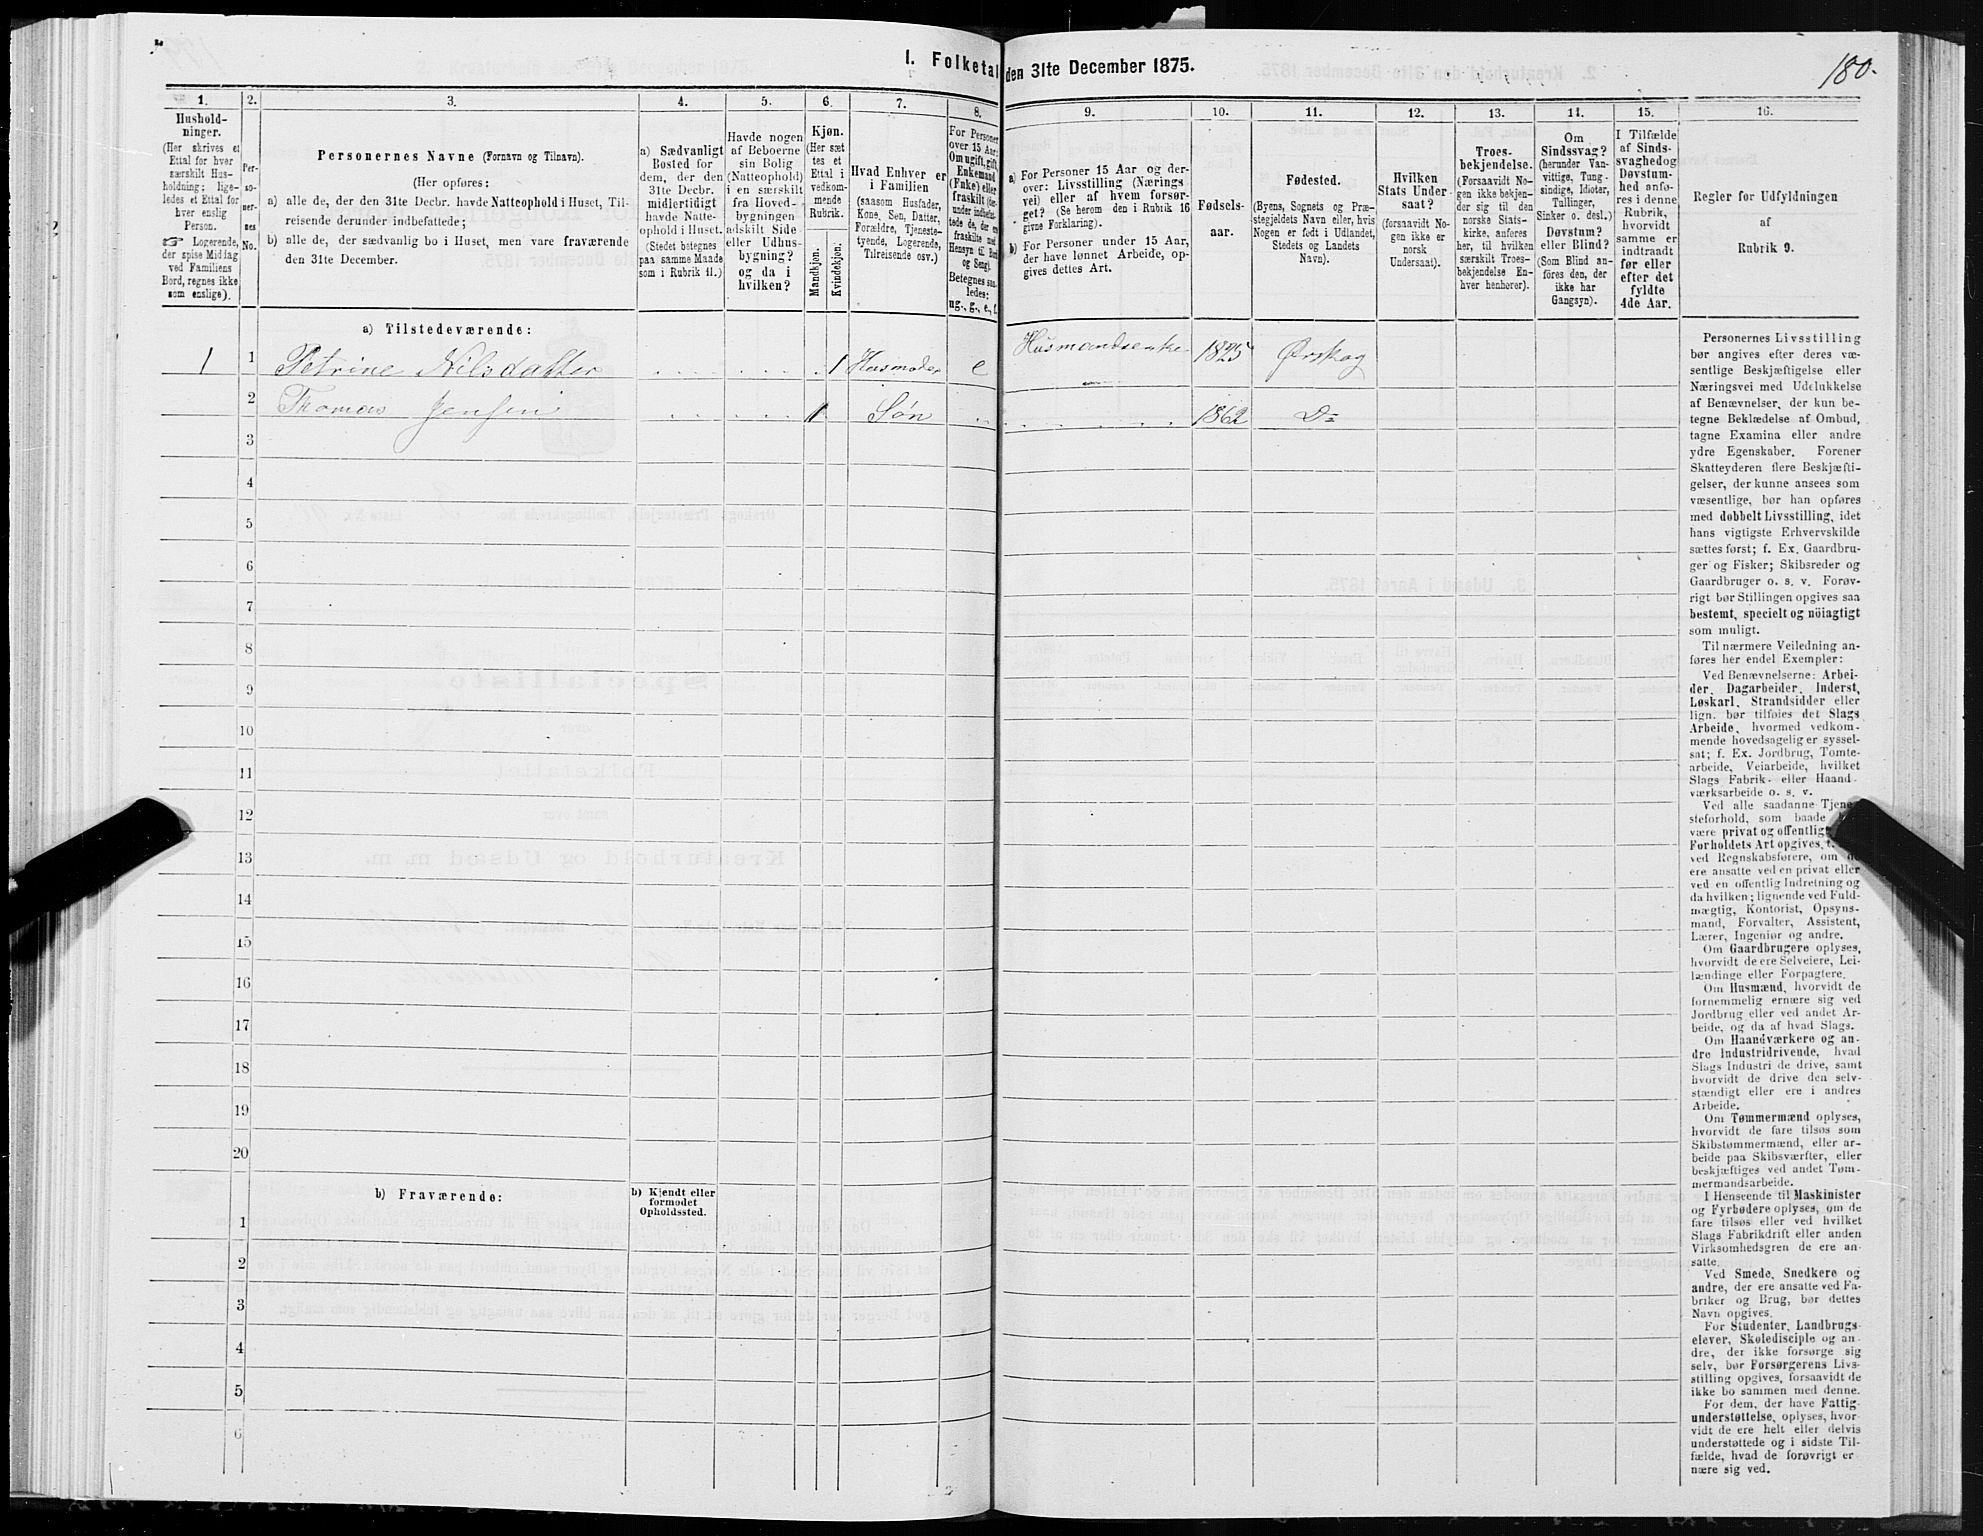 180.
I. Folketal den 31te December 1875.
1. 2. 3. 4. 5. 6. 7. 8. 9. 10. 11. 12. 13. 14. 15. 16.
Hushold-
ninger.
(Her skrives et
Ettal for hver
særskilt Hus-
holdning; lige-
ledes et Ettal for
hver enslig
Person.
☞ Logerende,
der spise Middag
ved Familiens
Bord, regnes ikke
som enslige).
Per-
so-
ner-
nes
No.
Personernes Navne (Fornavn og Tilnavn).
(Her opføres:
a) alle de, der den 31te Decbr. havde Natteophold i Huset, Til-
reisende derunder indbefattede;
b) alle de, der sædvanlig bo i Huset, men vare fraværende
den 31te December.
a) Sædvanligt
Bosted for
dem, der den
31te Decbr.
midlertidigt
havde Natte-
ophold i Huset.
(Stedet betegnes
paa samme Maade
som i Rubrik 11.)
Havde nogen
af Beboerne
sin Bolig
(Natteophold)
i en særskilt
fra Hoved-
bygningen
adskilt Side
eller Udhus-
bygning?
og da i
hvilken?
Kjøn.
(Her sæt
tes et
Ettal i
vedkom-
mende
Rubrik.
Mandkjøn.
Kvindekjøn.
Hvad Enhver er
i Familien
(saasom Husfader,
Kone, Søn, Datter,
Forældre, Tjeneste-
tyende, Logerende,
Tilreisende osv.)
For Personer
over 15 Aar:
Om ugift, gift,
Enkemand
(Enke) eller
fraskilt (her-
under indbefat-
tede de, der ere
fraskilte med
Hensyn til Bord
og Seng).
Betegnes saa-
ledes:
ug., g., e., f.
a) For Personer 15 Aar og der-
over: Livsstilling (Nærings
vei) eller af hvem forsør-
get? (Se herom den i Rubrik 16
givne Forklaring).
b) For Personer under 15 Aar,
der have lønnet Arbeide, op-
gives dettes Art.
Fødsels-
aar.
Fødested.
(Byens, Sognets og Præ-
stegjeldets Navn eller, hvis
Nogen er født i Udlandet,
Stedets og Landets
Navn).
Hvilken
Stats Under-
saat?
(forsaavidt No-
gen ikke er
norsk
Undersaat).
Troes-
bekjendelse.
(Forsaavidt No-
gen ikke bekjen-
der sig til den
norske Stats-
kirke, anføres
her, til hvilken
særskilt Troes-
bekjendelse En-
hver henhører).
Om
Sindssvag?
(herunder Van-
vittige, Tung-
sindige, Idioter,
Tullinger,
Sinker o. desl.)
Døvstum?
eller Blind?
(Som Blind an-
føres den, der
ikke har
Gangsyn).
I Tilfælde
af Sinds-
svaghed og
Døvstum-
hed anfø-
res i denne
Rubrik,
hvorvidt
samme er
indtraadt
før eller
efter det
fyldte
4de Aar.
Regler for Udfyldningen
af
Rubrik 9.
a) Tilstedeværende:
1 1 Petrine Nilsdatter 1 Husmoder e Husmandsenke 1825 Ørskog
2 Thomas Jensen 1 Søn 1862 Do
3
4
5
6
7
8
9
10
11
12
13
14
15
16
17
18
19
20
b) Fraværende:
b) Kjendt eller
formodet
Opholdssted.
1
2
3
4
5
6
Personernes Livsstilling
bør angives efter deres væ-
sentlige Beskjæftigelse eller
Næringsvei med Udelukkelse
af Benævnelser, der kun be-
tegne Beklædelse af Ombud,
tagne Examina eller andre
ydre Egenskaber. Forener
Skatteyderen flere Beskjæfti-
gelser, der kunne ansees som
væsentlige, bør han opføres
med dobbelt Livsstilling, idet
hans vigtigste Erhvervskilde
sættes først; f. Ex. Gaardbru-
ger og Fisker; Skibsreder og
Gaardbruger o. s. v. Forøv-
rigt bør Stillingen opgives saa
bestemt, specielt og nöiagtigt
som muligt.
Til nærmere Veiledning an-
føres her endel Exempler:
Ved Benævnelserne: Arbei-
der, Dagarbeider, Inderst,
Løskarl, Strandsidder eller
lign. bør tilføies det Slags
Arbeide, hvormed vedkom-
mende hovedsagelig er syssel-
sat; f. Ex. Jordbrug, Tomte-
arbeide, Veiarbeide, hvilket
Slags Fabrik- eller Haand-
værksarbeide o. s. v.
Ved alle saadanne Tjene-
steforhold, som baade
være privat og offentlig
Forholdets Art opgives,
ved Regnskabsførere, om de
ere ansatte ved en privat eller
ved en offentlig Indretning og
da hvilken; lignende ved Fuld-
mægtig, Kontorist, Opsyns-
mand, Forvalter, Assistent,
Lærer, Ingeniør og andre.
Om Gaardbrugere oplyses,
hvorvidt de ere Selveiere, Lei-
lændinge eller Forpagtere.
Om Husmænd, hvorvidt de
fornemmelig ernære sig ved
Jordbrug eller ved andet Ar-
beide, og da af hvad Slags.
Om Haandværkere og an-
dre Industridrivende, hvad
Slags Industri de drive, samt
hvorvidt de drive den selv-
stændigt eller ere i andres
Arbeide.
Om Tømmermænd oplyses,
hvorvidt de fare tilsøs som
Skibstømmermænd, eller ar-
beide paa Skibsværfter, eller
beskjæftiges ved andet Tøm-
mermandsarbeide.
I Henseende til Maskinister
og Fyrbødere oplyses, om de
fare tilsøs eller ved hvilket
Slags Fabrikdrift eller anden
Virksomhedsgren de ere an-
satte.
Ved Smede, Snedkere og
andre, der ere ansatte ved Fa-
briker og Brug, bør dettes
Navn opgives.
For Studenter, Landbrugs-
elever, Skoledisciple og an-
dre, der ikke forsørge sig
selv, bør Forsørgerens Livs-
stilling opgives, forsaavidt de
ikke bo sammen med denne.
For dem, der have Fattig-
understøttelse, oplyses, hvor-
vidt de ere helt eller delvis
understøttede og i sidste Til-
fælde, hvad de forøvrigt er-
nære sig ved.